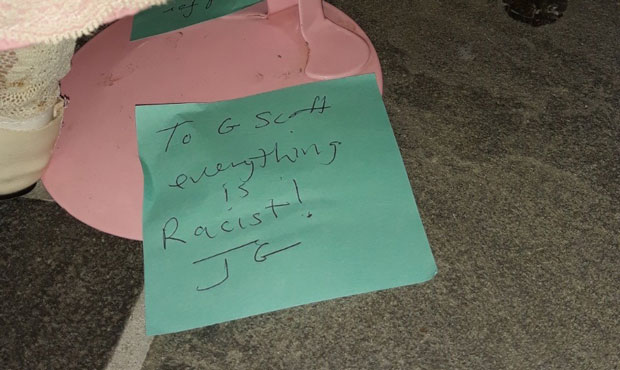 To G Scott
everything
is
Racist!
JG